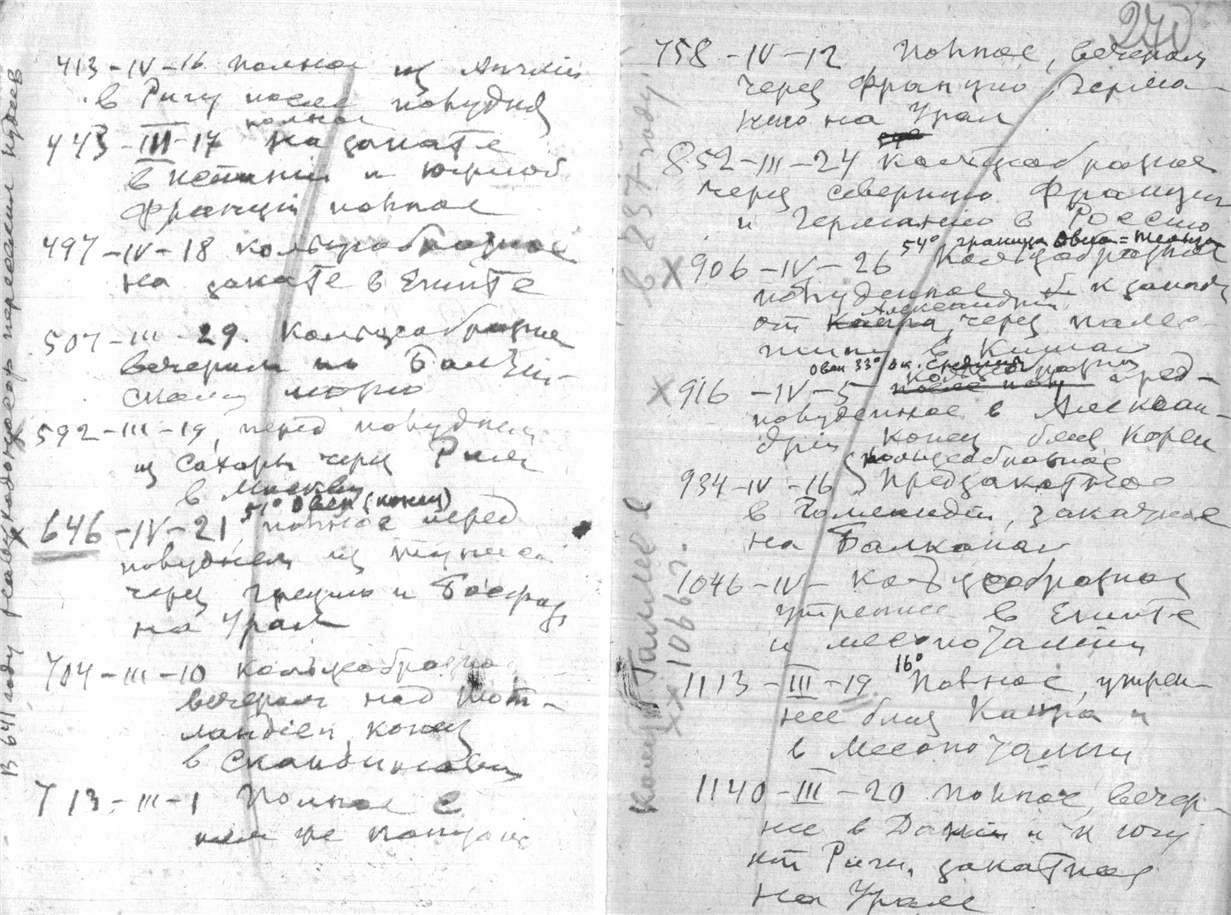 413-IV-16 полное из Англии
в Ригу после полудня
полное
443-III-17 на закате
в Испании и южной
Франции полное
497-IV-18 кольцеобразное
на закате в Египте
507-III-29. Кольцеобразное
вечером по Балтий-
скому морю
592-III-19, перед полуднем
из Сахары через Рим
в Москву
51° Овен (конец)
646-IV-21, полное перед
полуднем из Туниса
через Грецию и
на Урал
704-III-10 кольцеобразное
вечером над Шот-
ландией конец
в Скандинавии
713-III-1 Полное с
В 641 году
270
758-IV-12 полное, вечером
через Францию, Герма-
нию на Урал
852-III-24 кольцеобразное
через северную Францию
и Германию в Россию
54° граница Овна=Тельца
X 906-IV-26 Кольцеобразное
полуденное к западу
Александрии
от Каира, через Палес-
тину в Китай
Овен 33°
X 916-IV-5 пред-
полуденное в Алексан-
дрии конец близ Кореи
кольцеобразное
934-IV-16 Предзакатное
в Голландии, закатное
на Балканах
1046-IV- Кольцеобразное
утреннее в Египте
и Месопотамии
16°
1113-III-19 Полное, утрен-
нее близ Каира и
в Месопотамии
1140-III-20 полное, вечер-
нее в Дании и к югу
от Риги, закатное
на Урале
в 837 году
Комета Галлея
XX 1066 г.